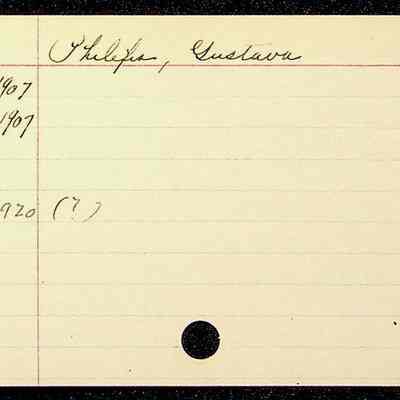 Philefis, Gustava
1907
1907
1920 (?)